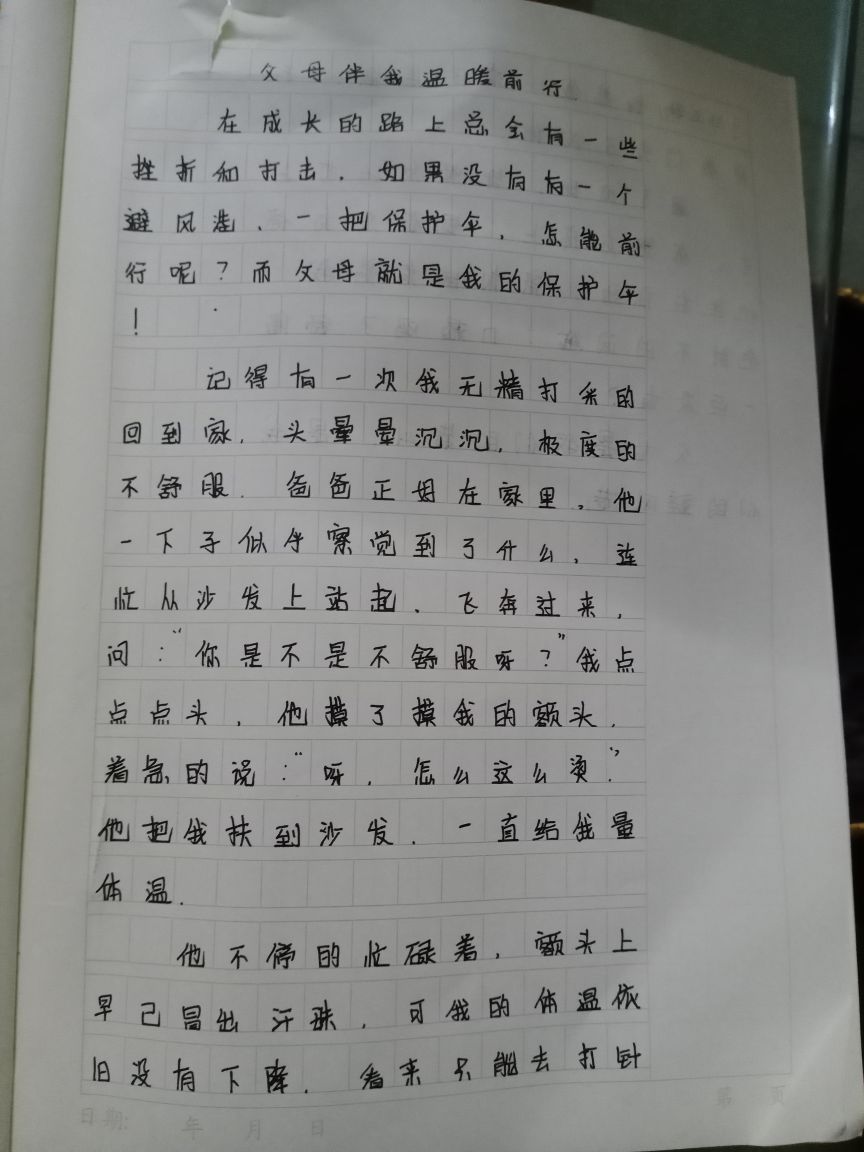 父母伴我温暖前行
在成长的路上总会有一些
挫折和打击，如果没有有一个
避风港、一把保护伞，怎能前
行呢？而父母就是我的保护伞
！
记得有一次我无精打采的
回到家，头晕晕沉沉，极度的
不舒服．爸爸正好在家里，他
一下子似乎察觉到了什么，连
忙从沙发上站起，飞奔过来，
问：“你是不是不舒服呀？”我点
点点头，他摸了摸我的额头，
着急的说：“呀，怎么这么烫．”
他把我扶到沙发．一直给我量
体温．
他不停的忙碌着，额头上
早己冒出汗珠，可我的体温依
旧没有下降．看来只能去打针
日期: 年 月 日
第 页